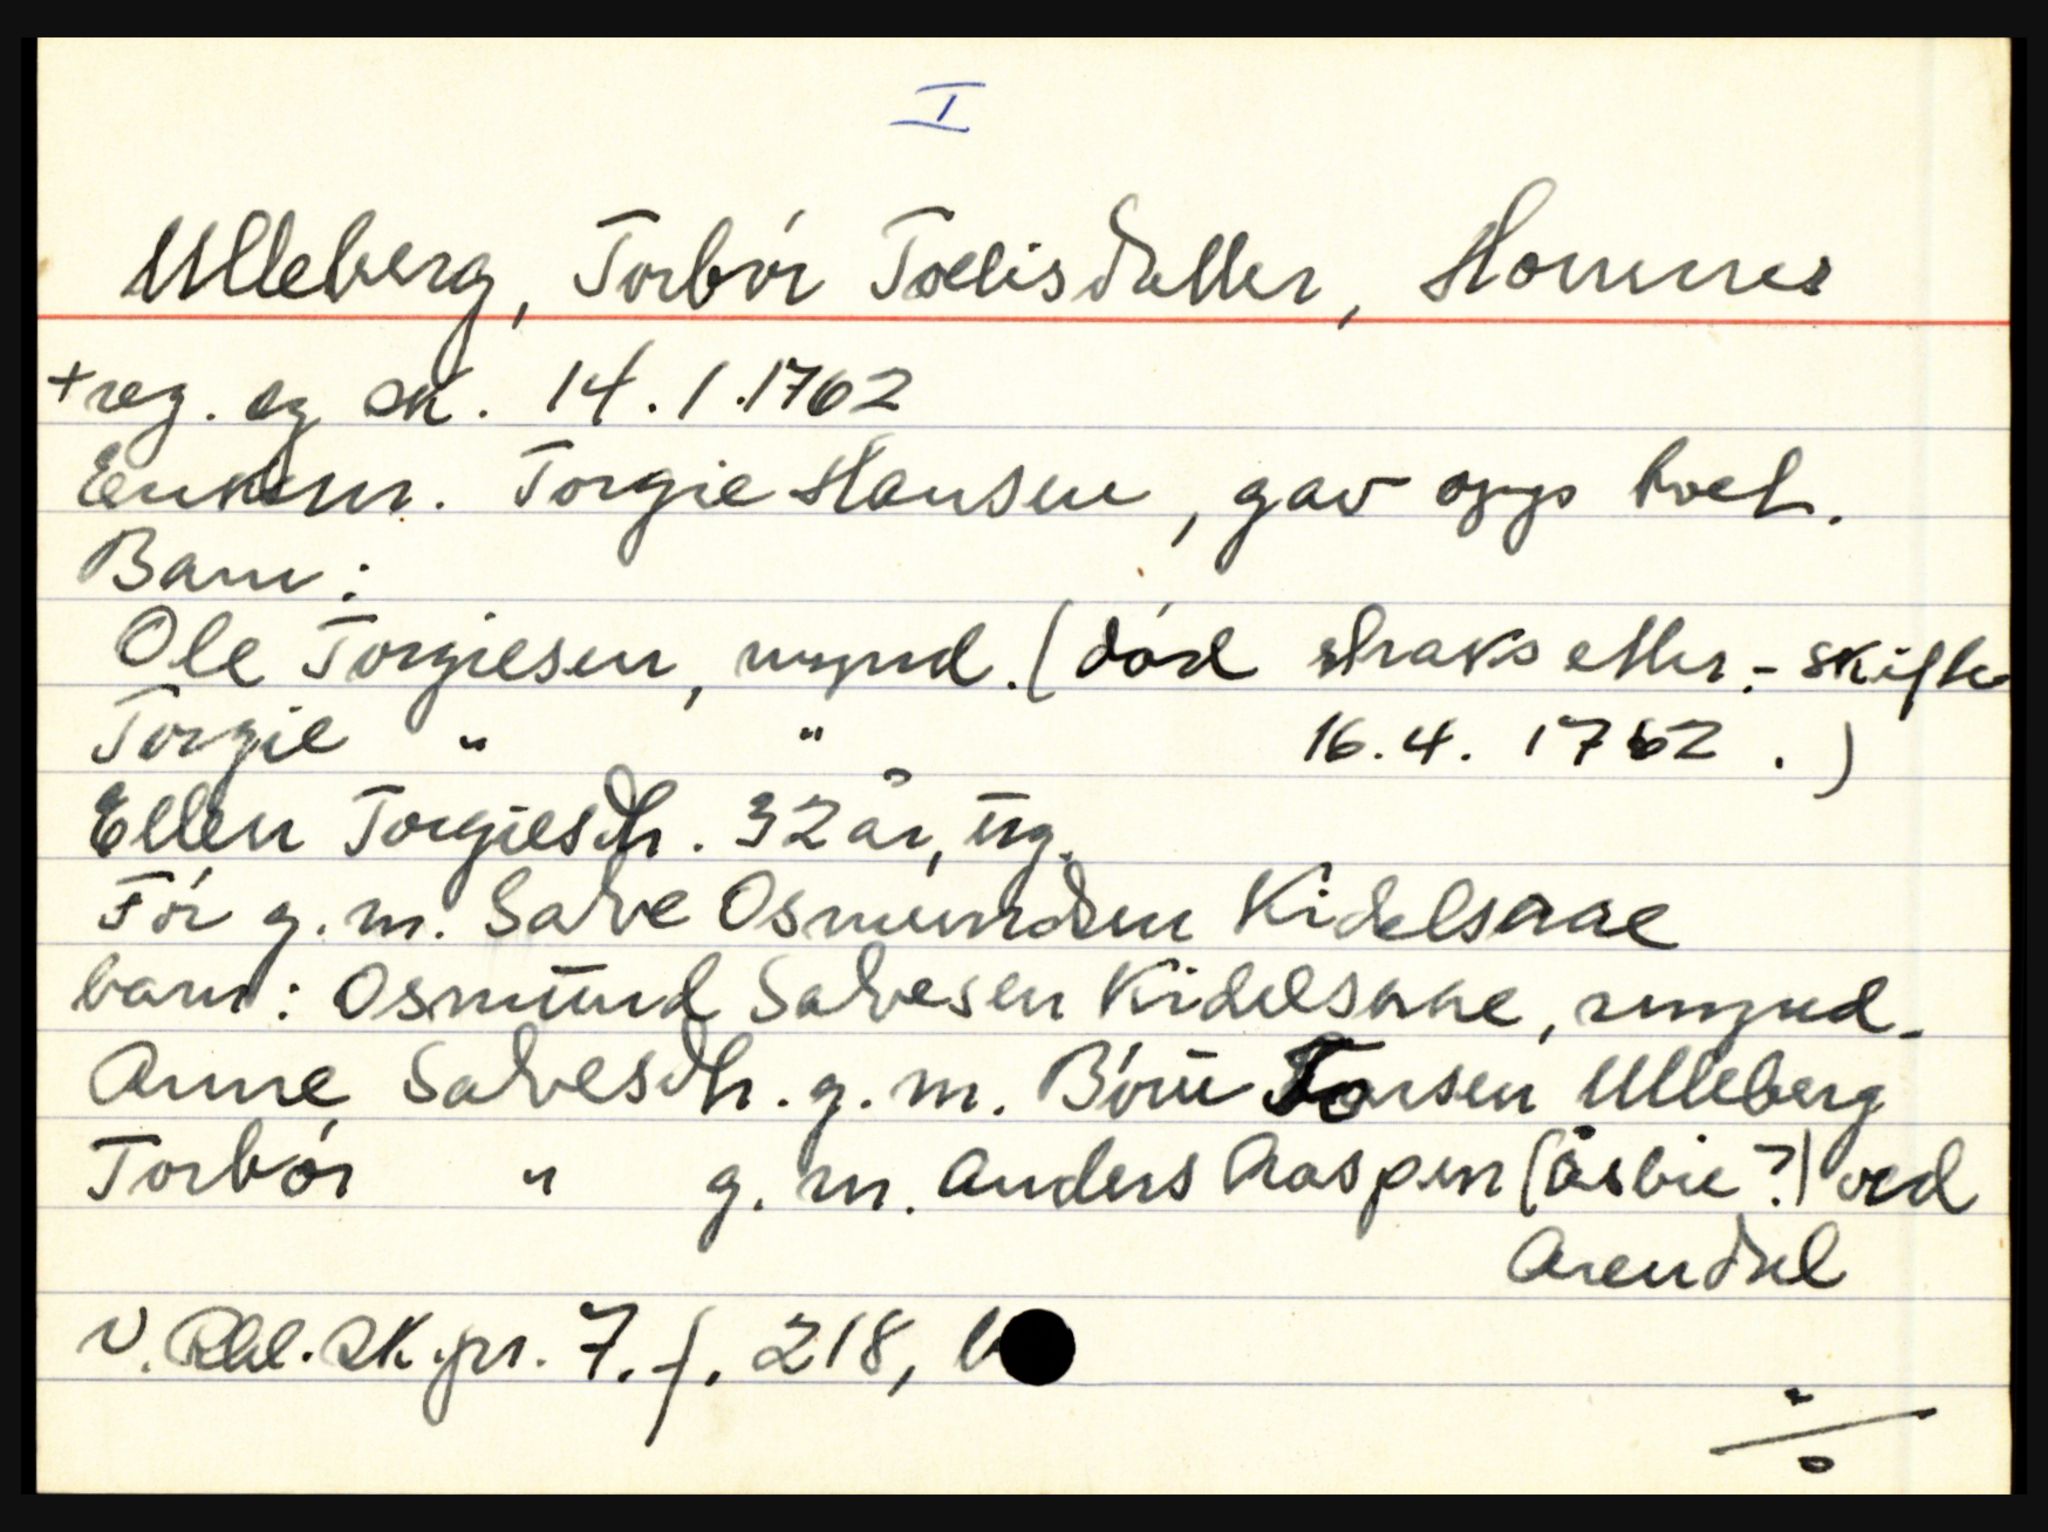 I
Ulleberg, Torbór Toelisdatter, Homnes
+ reg. og sk. 14.1.1762
Enkem. Torgie Hansen, gav opp boet.
Barn:
Ole Torgiesen, mynd. (död straks etter.- skifte
Torgie " " 16.4. 1762.)
Ellen Torgiesdtr. 32 år, ug.
Fór g.m. Salve Osmundsen Kidelsaae
barn: Osmund Salvesen Kidelsaae, mynd.
Anne Salvesdtr. g.m. Bóru Torsen Ulleberg
Torbór " g.m. Anders Aaspen (åsbie?) ved
Arendal
N. Rbl. sk.pr. 7. f. 218, b